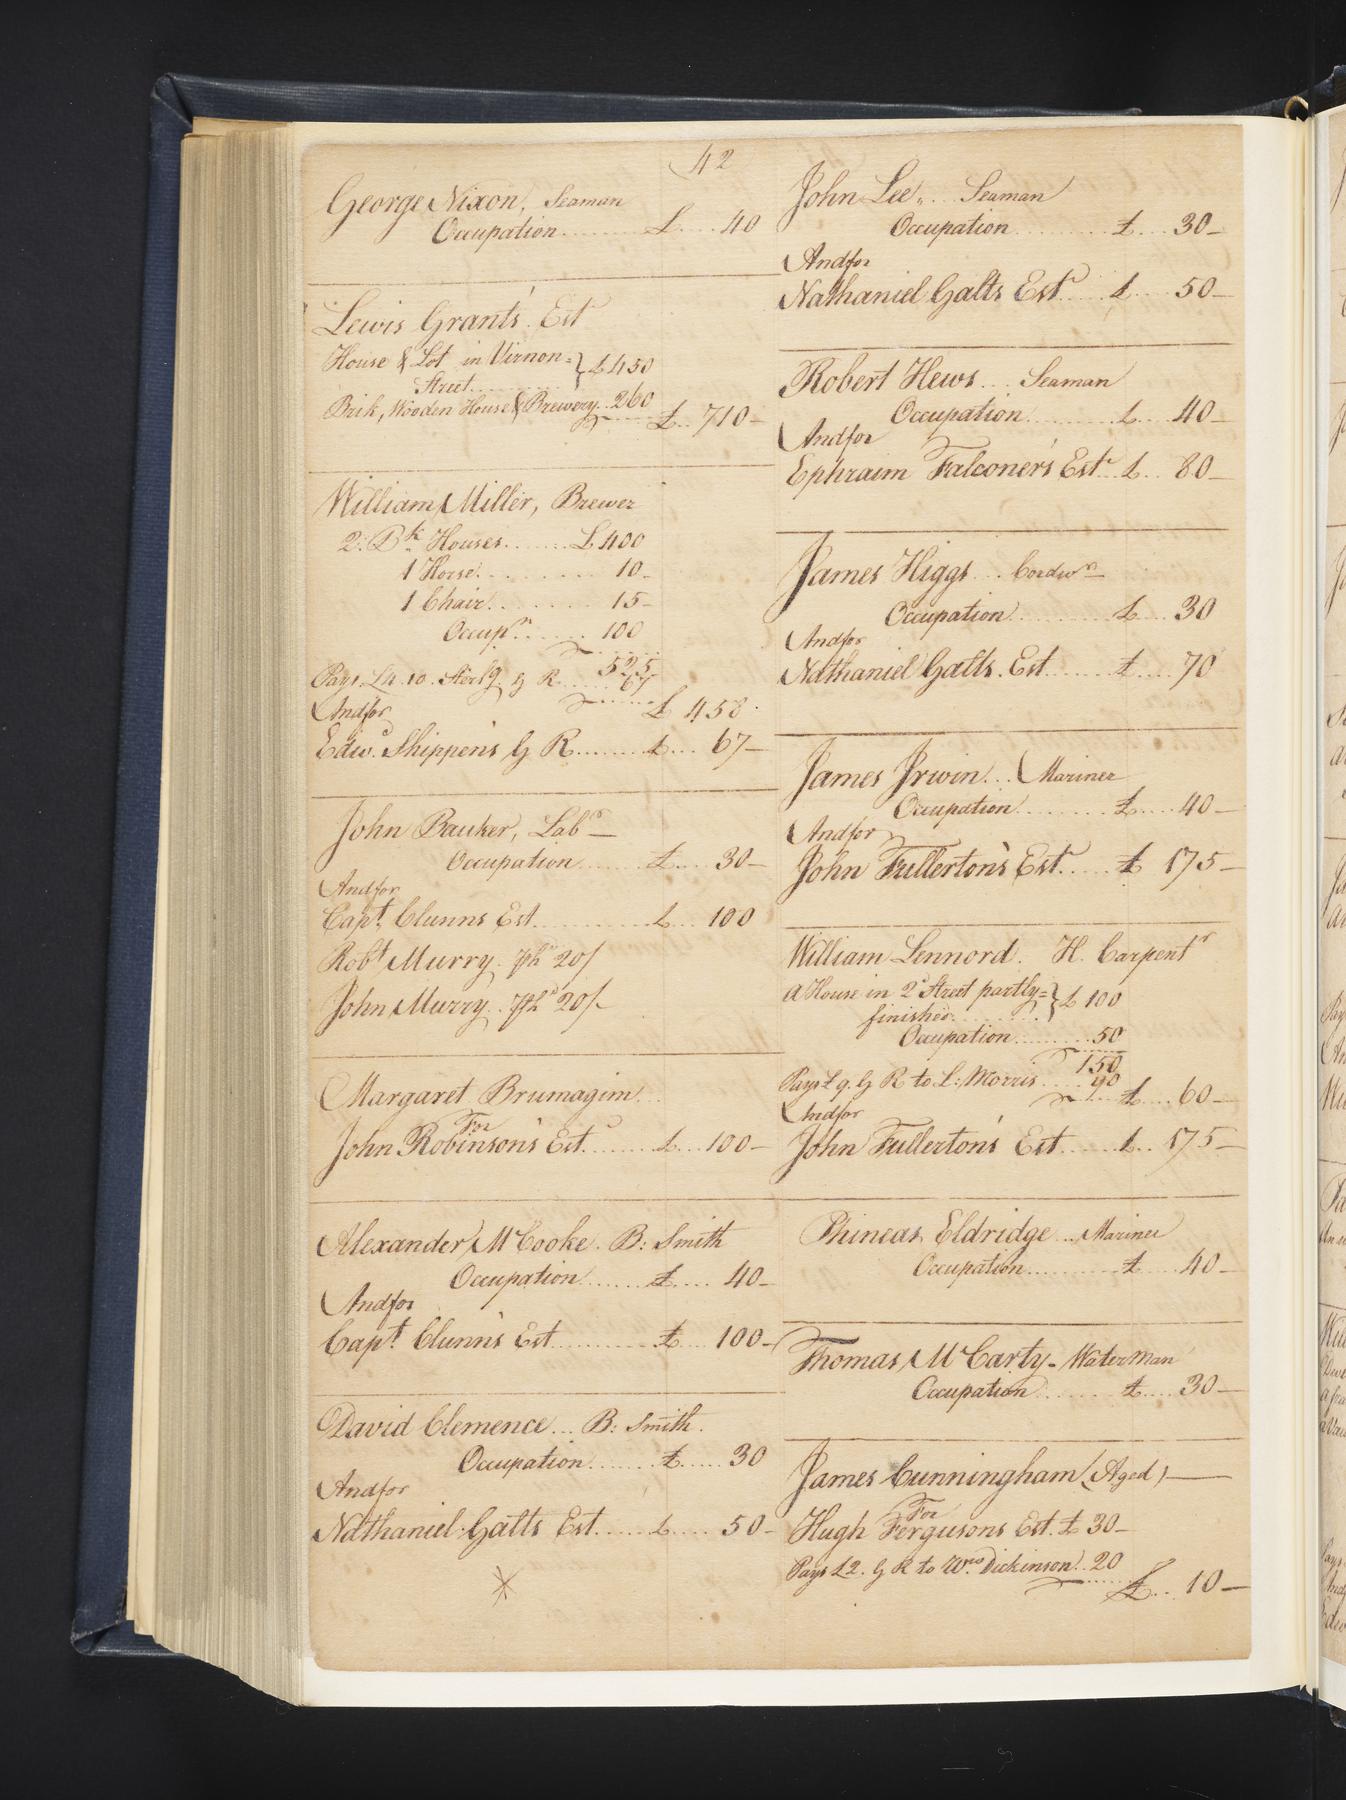 42
George Nixon, Seaman
Occupation ........ £ .... 40
Lewis Grant's Est
House & Lot in Virnon= } £450
Street ........
Brik, Wooden House & Brewery .. 260
£ .. 710 -
William Miller, Brewer
2: Bk Houses ...... £400
1 Horse ........ 10 -
1 Chair ........ 15 -
Occupn ...... 100
525
Pays £4.10. Sterlg G R ...... 67
Andfor £ 458
Edwd Shippen's G R ....... £ ... 67 -
John Bauker, Labr -
Occupation ...... £ .... 30 -
Andfor
Capt. Clunns Est ......... £ ... 100
Robt Murry . 20/
John Murry . 20/-
Margaret Brumagim ...
For
John Robinson's Est. ...... £ ... 100 -
Alexander McCooke . B: Smith
Occupation ...... £ .... 40 -
Andfor
Capt. Clunn's Est ......... £ ... 100 -
David Clemence ... B: Smith .
Occupation ...... £ ..... 30
Andfor
Nathaniel Galts Est. .... £ .... 50 -
John Lee, .. Seaman
Occupation ........ £ ... 30 -
Andfor
Nathaniel Galts Est .... £ ... 50 -
Robert Hews ... Seaman
Occupation ........ £ ... 40 -
Andfor
Ephraim Falconer's Est .. £ .. 80 -
James Higgs ... Cordwr -
Occupation ........ £ ... 30
Andfor
Nathaniel Galts . Est ..... £ .... 70
James Irwin ... Mariner
Occupation ........ £ .... 40 -
Andfor
John Fullerton's Est. .... £ 175 -
William Lennord . H. Carpentr
a House in 2d Street partly= } £ 100
finished ........
Occupation ....... 50
150
Pays £9. G R to L: Morris .... 90
£ .... 60 -
Andfor
John Fullerton's Est ..... £ .. 175 -
Phineas Eldridge .. Mariner
Occupation ........ £ .... 40 -
Thomas McCarty - Waterman
Occupation ....... £ .... 30 -
James Cunningham (Aged) -
For
Hugh Fergusons Est. £ 30 -
Pays £2. G R to Wm Dickinson .. 20
£ .. 10 -